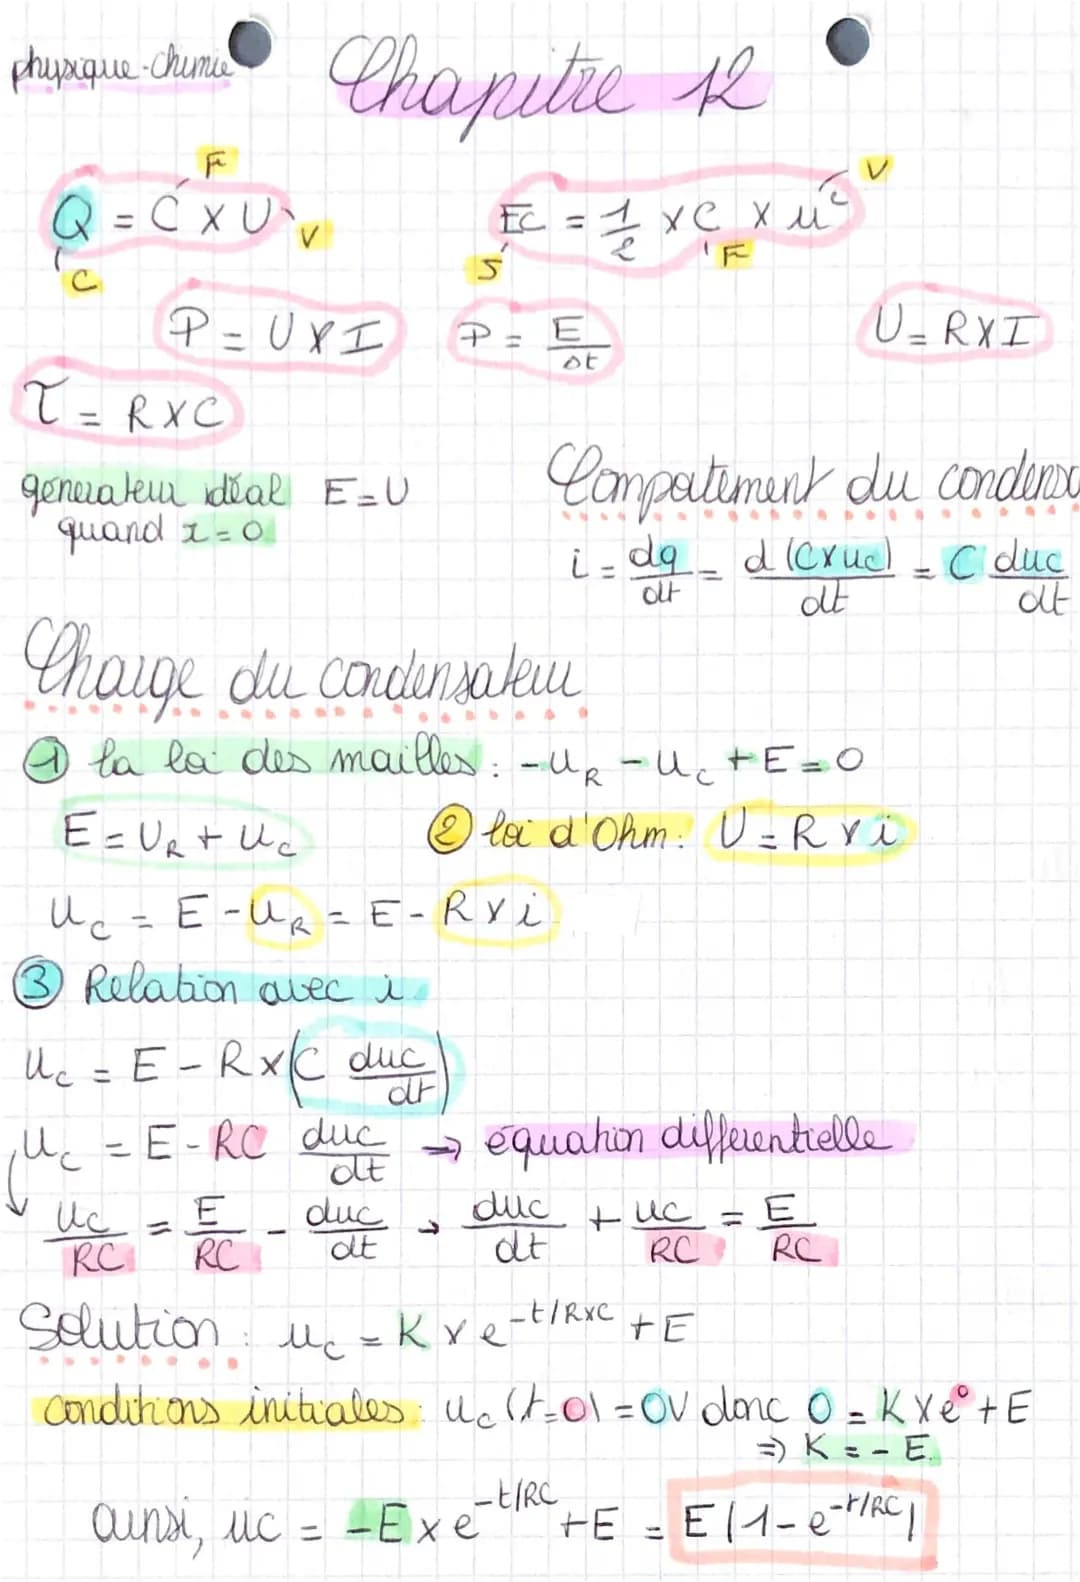 physique-chimie
Chapitre 12
F V
Q = C x U EC = 1/2 x C x u²
V
C J F
P = U x I P = E/Δt U = R x I
τ = R x C
générateur idéal E = U
quand r = 0
Compatement du condensa
i = dq/dt = d(C x uc)/dt = C duc/dt
Charge du condensateur
① la loi des mailles : -uR - uc + E = 0
E = UR + uc ② loi d'Ohm : U = R x i
uc = E - uR = E - R x i
③ Relation avec i
uc = E - R x (C duc/dt)
uc = E - RC duc/dt → équation différentielle
↓ uc/RC = E/RC - duc/dt → duc/dt + uc/RC = E/RC
Solution : uc = K x e^-t/RxC + E
conditions initiales : uc (t=0) = 0V donc 0 = K x e⁰ + E
⇒ K = - E.
ainsi, uc = -E x e^-t/RC + E = E(1 - e^-t/RC)